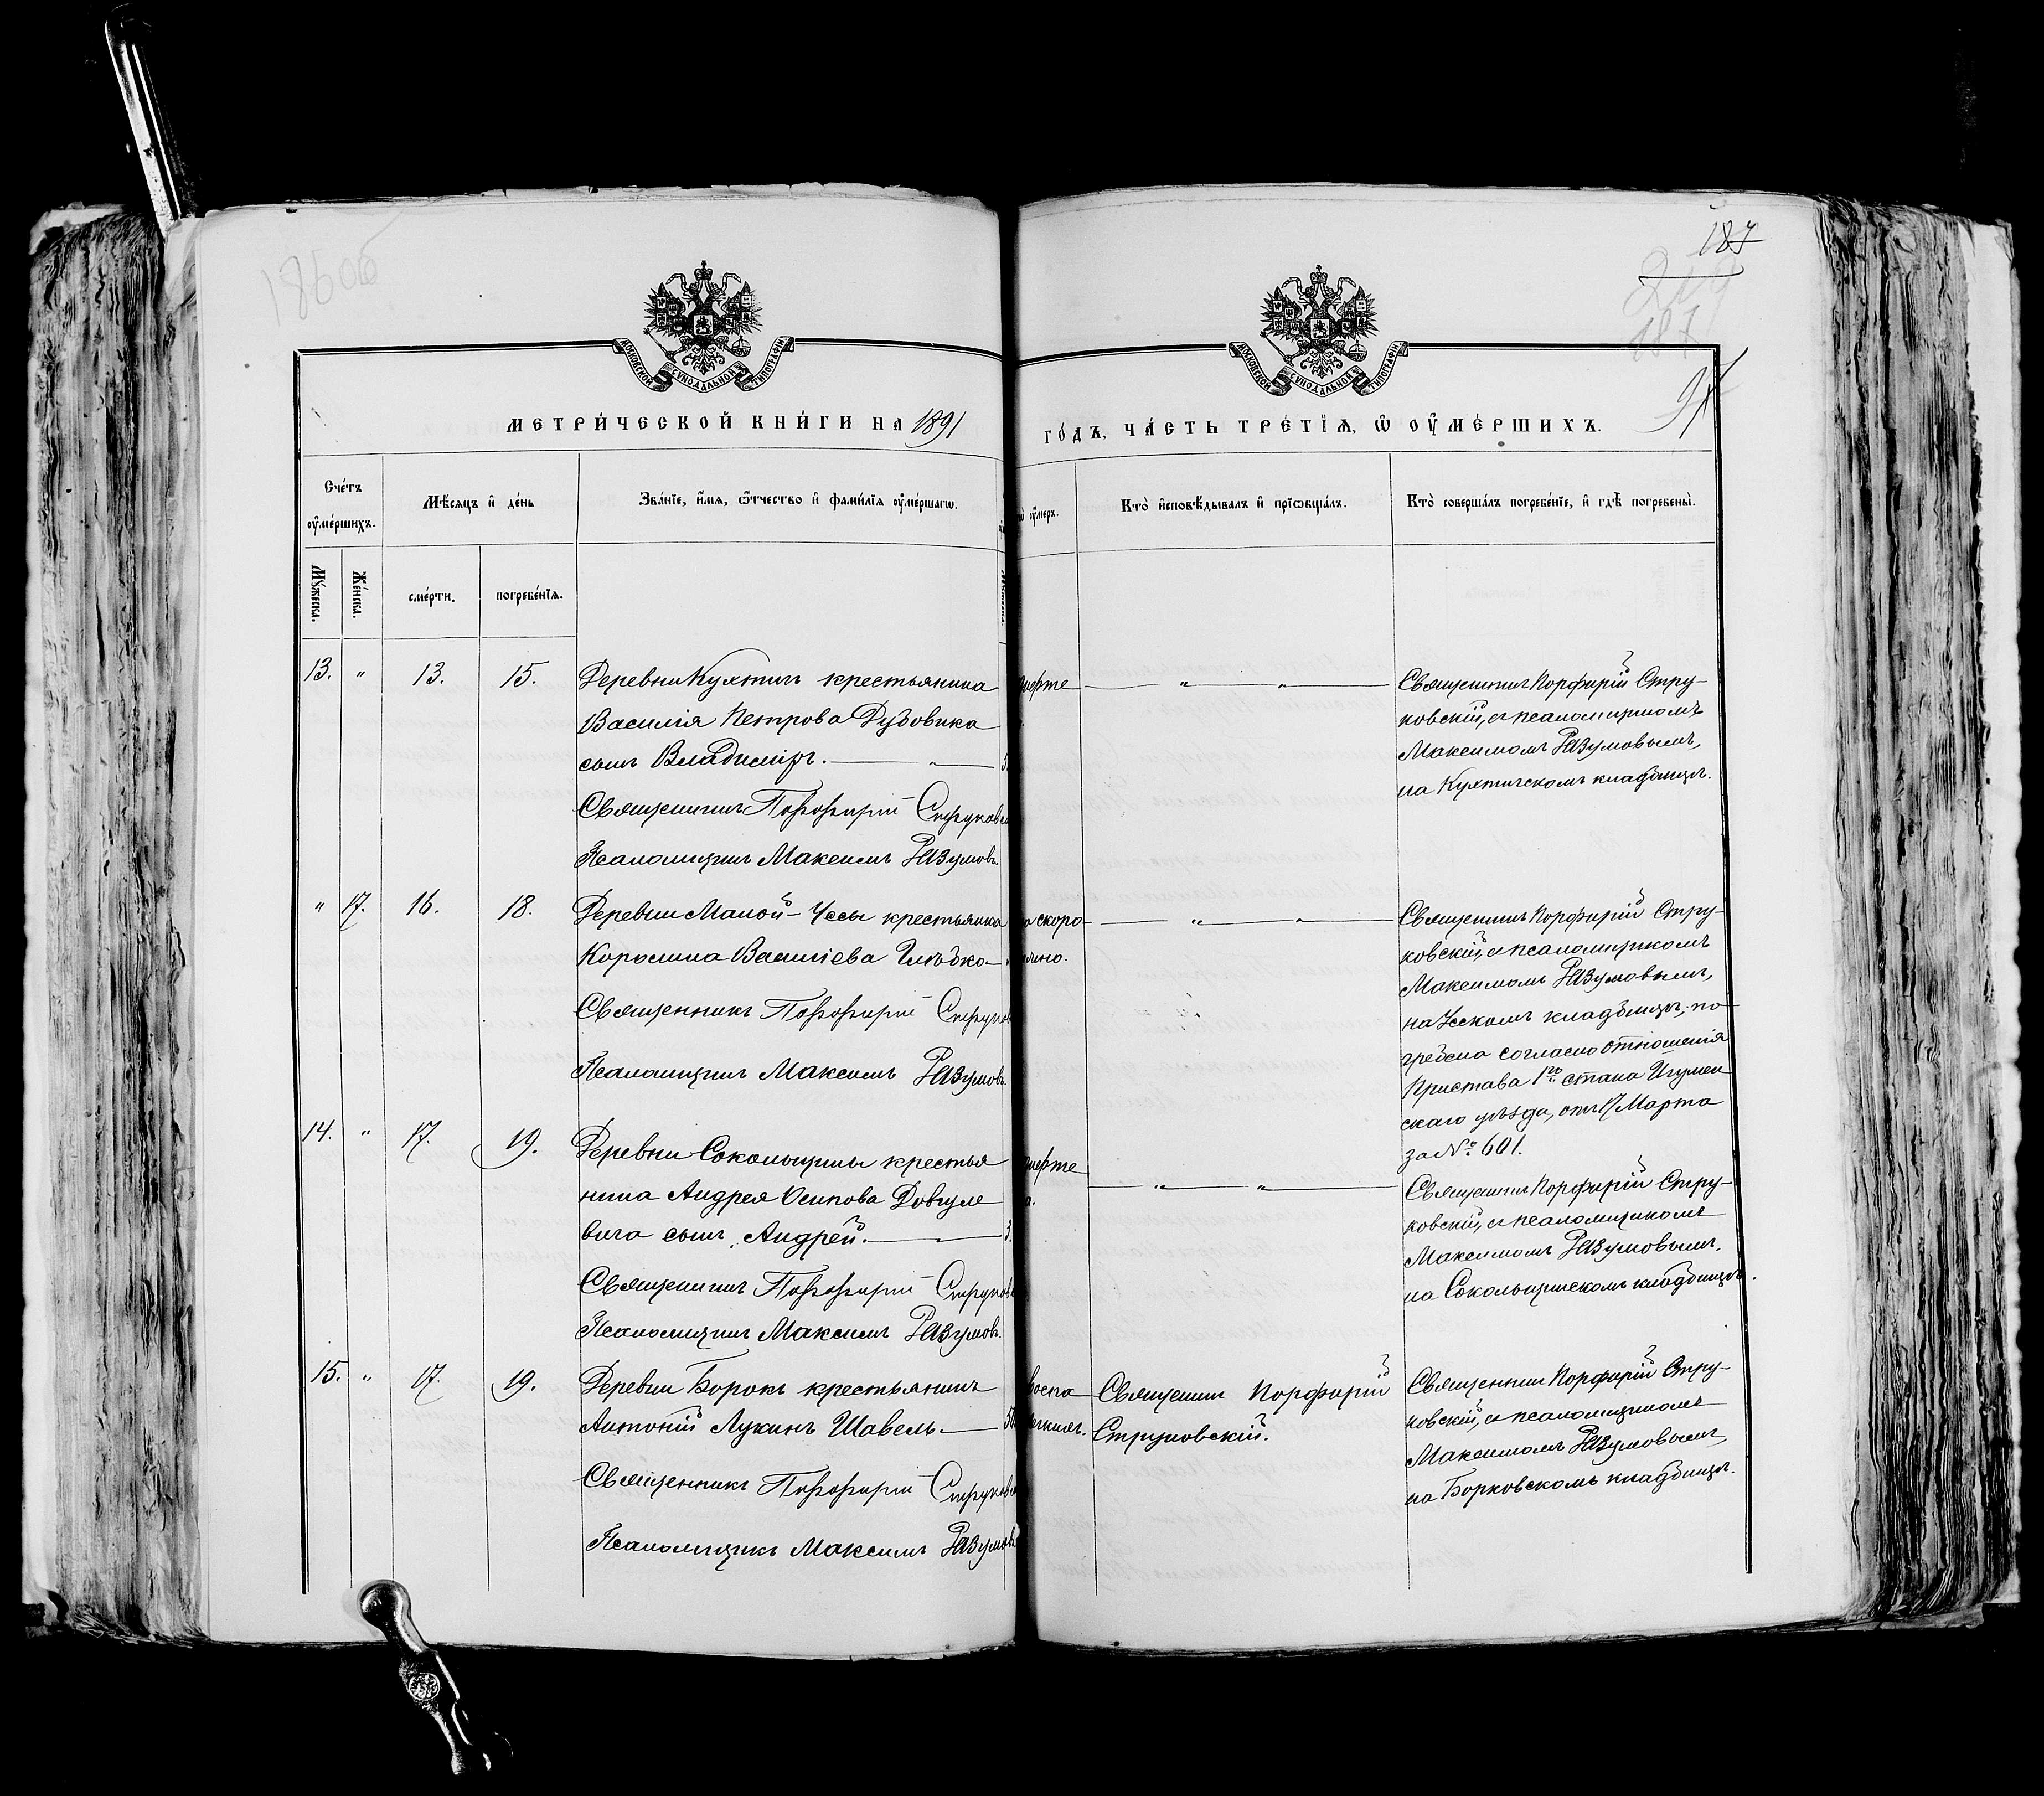 186об
187
187
МОСКОВСКОЙ СѴНОДАЛЬНОЙ ТИПОГРАФІИ
МОСКОВСКОЙ СѴНОДАЛЬНОЙ ТИПОГРАФІИ
МЕТРИ́ЧЕСКОЙ КНИ́ГИ НА 1891
ГО́ДЪ, ЧА́СТЬ ТРЕ́ТІѦ, Ѡ҆ ОУ҆МЕ́РШИХЪ.
Сче́тъ оу҆ме́ршихъ.
Мѣ́сяцъ и҆ де́нь
Зва́нїе, и҆́мѧ, ѻ҆́тчество и҆ фами́лїѧ оу҆ме́ршагѡ.
оу҆́меръ.
Кто̀ и҆сповѣ́дывалъ и҆ прїѡбща́лъ.
Кто̀ соверша́лъ погребе́нїе, и҆ гдѣ̀ погребены̀.
Мꙋ́жеска.
Же́нска.
сме́рти.
погребе́нїѧ.
13. " 13. 15. Деревни Кухтичъ крестьянина
Василія Петрова Дубовика
сынъ Владиміръ. — " —
Священникъ Порфирій
Псаломщикъ Максимъ Разумовъ.
— " — " —
Священникъ Порфирій Стру-
ковскій, съ псаломщикомъ
Максимомъ Разумовымъ,
на Кухтичскомъ кладбищѣ.
" 17. 16. 18. Деревни Малой-Усы крестьянка
Васильева Глѣбко —
Священникъ Порфирій
Псаломщикъ Максимъ Разумовъ.
скоро-
— " — " —
Священникъ Порфирій Стру-
ковскій, съ псаломщикомъ
Максимомъ Разумовымъ,
на Усскомъ кладбищѣ, по-
гребена согласно отношенія
Пристава 1го стана Игумен
скаго уѣзда, отъ 17 Марта
за № 601.
14. " 17. 19. Деревни Сокольщины крестья
нина Андрея Осипова Довгуле
вича сынъ, Андрей. — " — 3.
Священникъ Порфирій
Псаломщикъ Максимъ Разумовъ.
— " — " —
Священникъ Порфирій Стру-
ковскій, съ псаломщикомъ
Максимомъ Разумовымъ,
на Сокольщинскомъ кладбищѣ.
15. " 17. 19. Деревни Борокъ крестьянинъ
Антоній Лукинъ Шавель. —
Священникъ Порфирій
Псаломщикъ Максимъ
Священникъ Порфирій
Струковскій.
Священникъ Порфирій Стру-
ковскій, съ псаломщикомъ
Максимомъ Разумовымъ,
на Борковскомъ кладбищѣ.